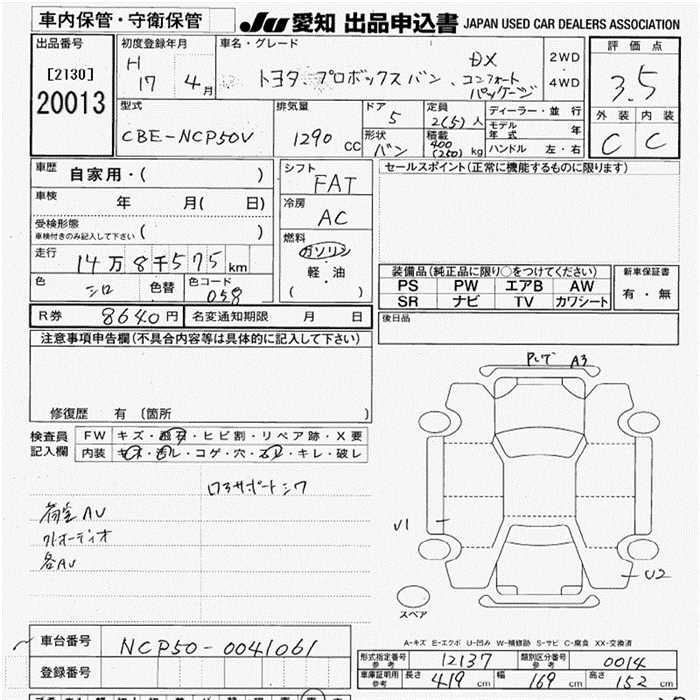 車内保管・守衛保管
JU 愛知 出品申込書 JAPAN USED CAR DEALERS ASSOCIATION
出品番号
[2130]
20013
初度登録年月
H 17 4月
車名・グレード
トヨタ、プロボックスバン、DX コンフォートパッケージ
2WD
4WD
評価点
3.5
外装 内装
C C
型式
CBE-NCP50V
排気量
1290 CC
ドア
5
形状
バン
定員
2(5)人
積載
400
(250) kg
ディーラー・並行
モデル年式 年
ハンドル 左・右
車歴
自家用・( )
車検 年 月( 日)
受検形態
車検付きのみ記入して下さい ( )
走行
14万8千575km
色 シロ 色替 色コード 058
シフト
FAT
冷房
AC
燃料
ガソリン
軽・油
( )
セールスポイント(正常に機能するものに限ります)
装備品(純正品に限り○をつけてください)
PS PW エアB AW
SR ナビ TV カワシート
新車保証書
有・無
R券 8640円 名変通知期限 月 日
後日品
注意事項申告欄(不具合内容等は具体的に記入して下さい)
修復歴 有 (箇所 )
検査員記入欄
FW キズ・・ヒビ割・リペア跡・X要
内装 ・・コゲ・穴・・キレ・破レ
ロアサポートシワ
荷室AU
各AU
A3
U1
U2
スペア
A-キズ E-エクボ U-凹み W-補修跡 S-サビ C-腐食 XX-交換済
車台番号 NCP50-0041061
登録番号
形式指定番号参考 12137 類別区分番号参考 0014
車庫証明用参考 長さ 419 cm 幅 169 cm 高さ 152 cm